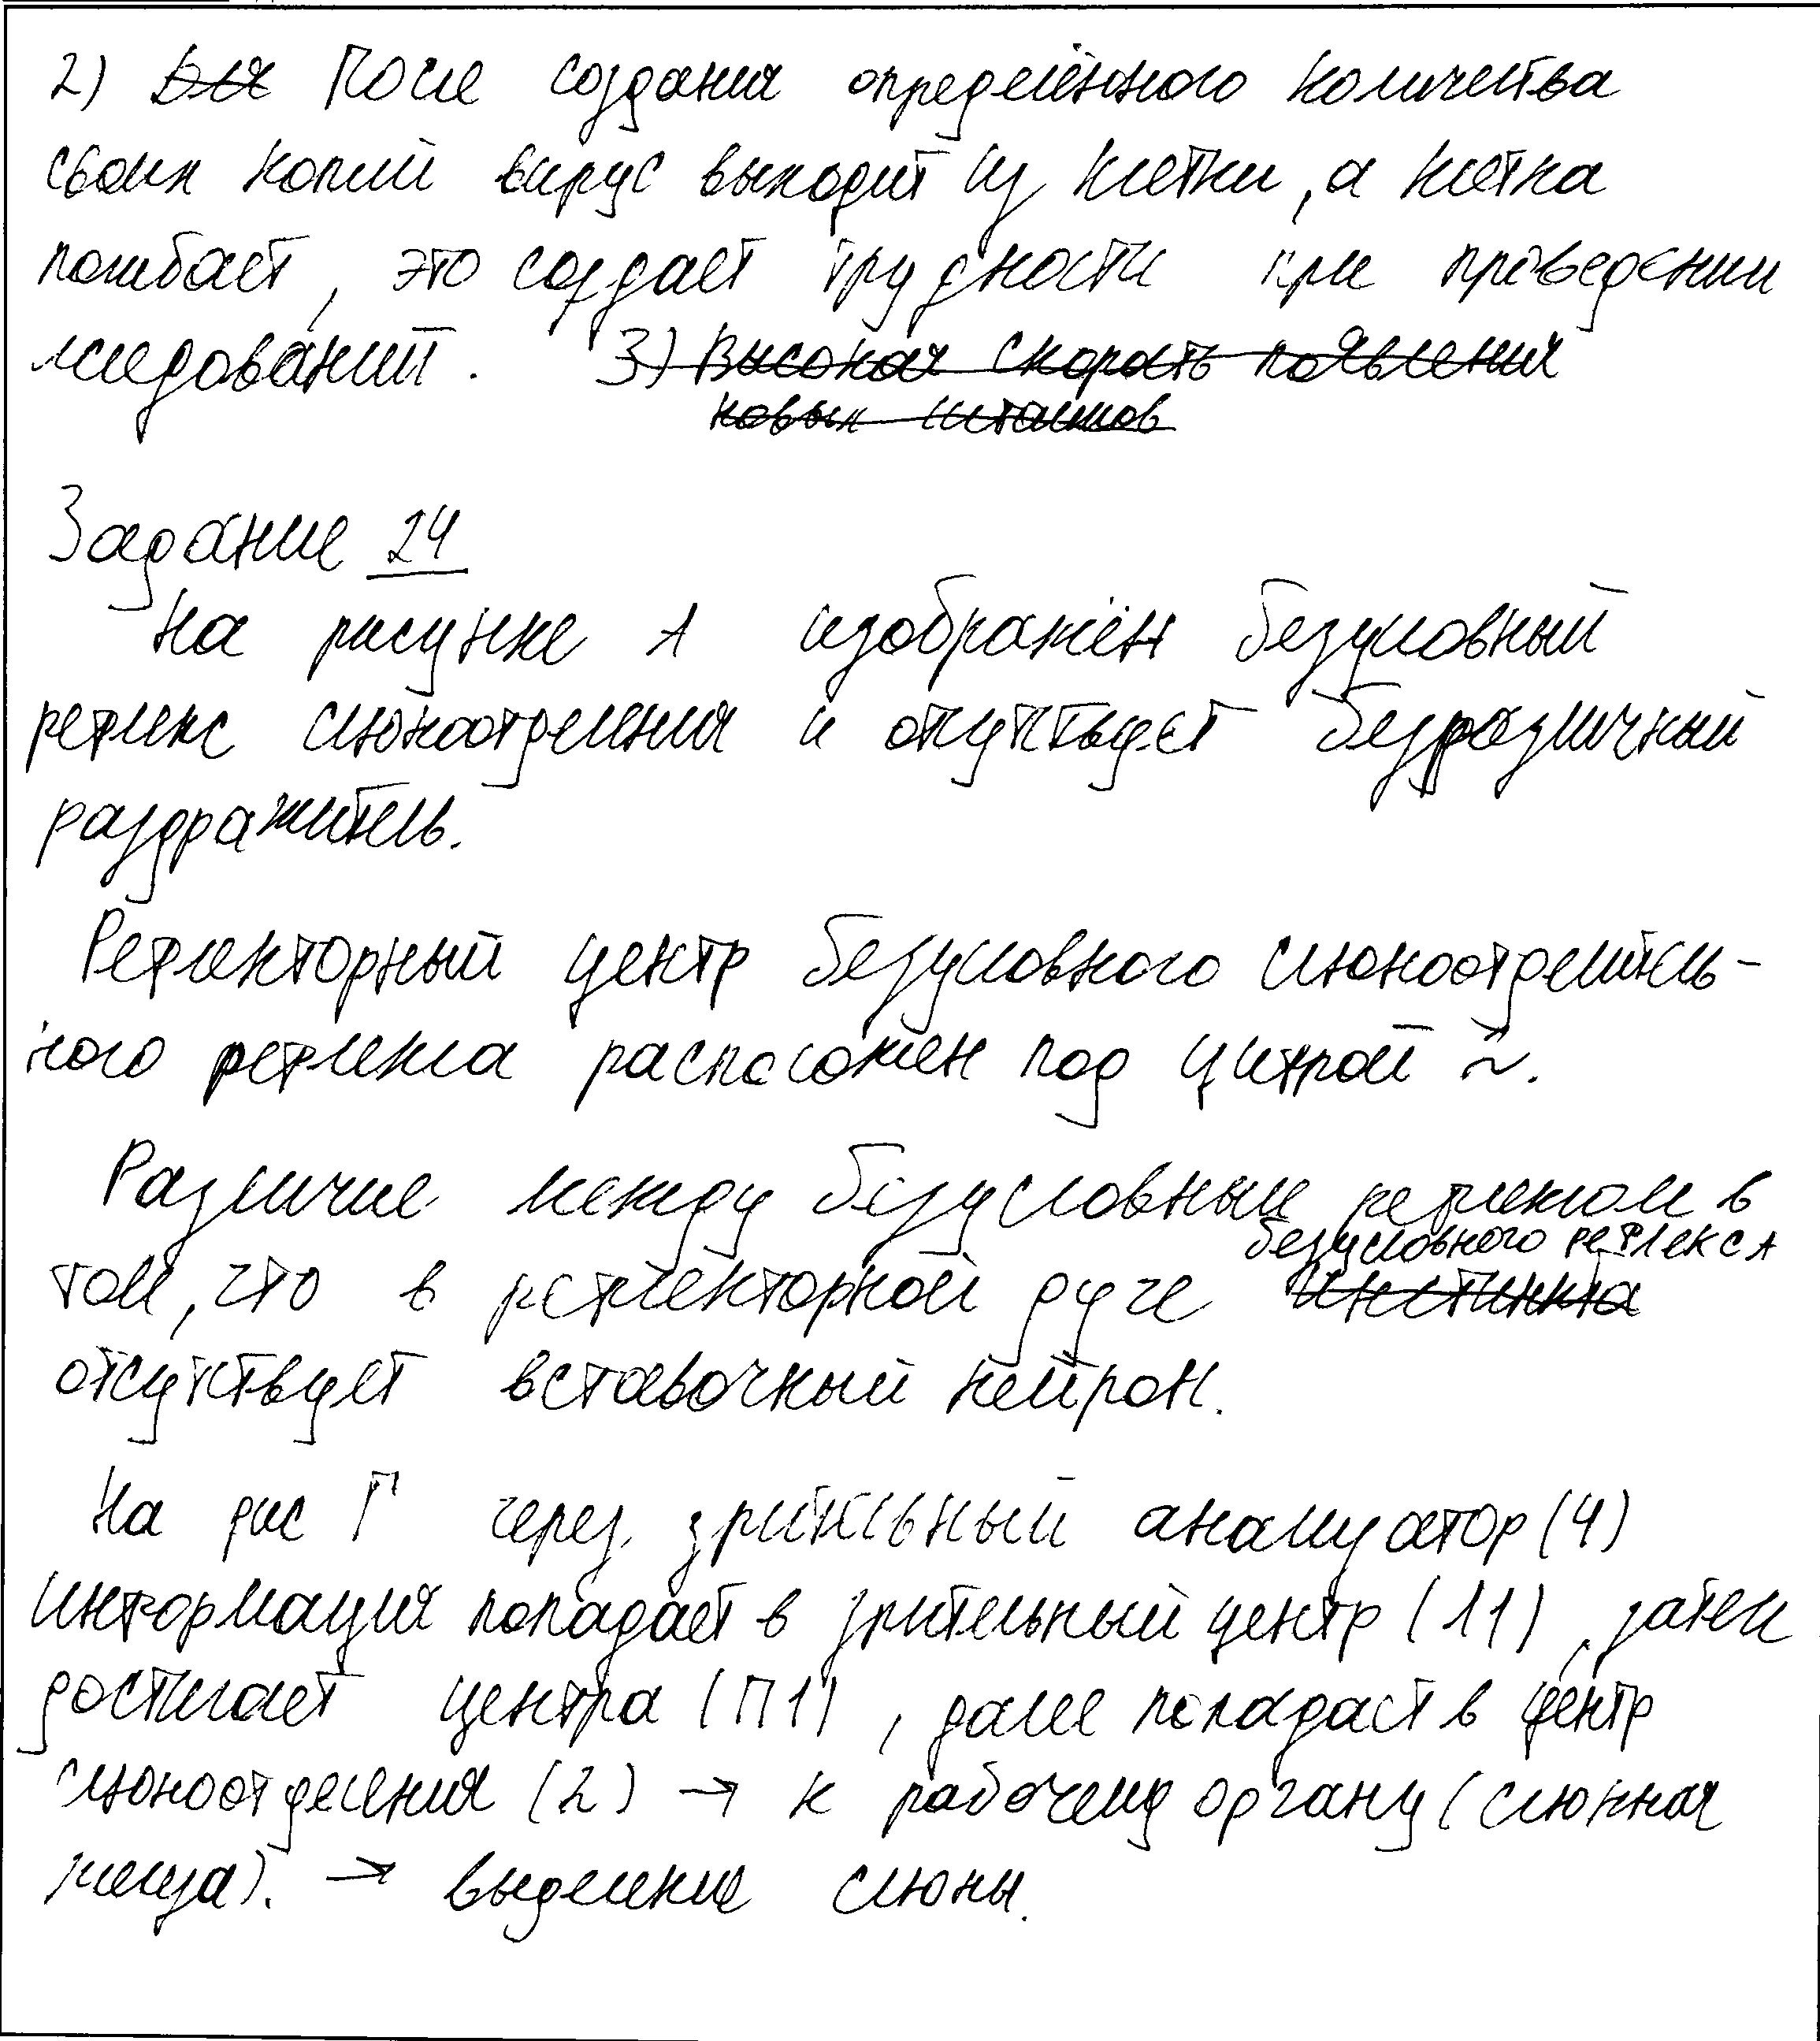 2) ~~Для~~ После создания определённого количества
своих копий вирус выходит из клетки, а клетка
погибает, это создает трудности при проведении
исследований. ~~3) Высокая скорость появления~~
~~новых штаммов~~
Задание 24
На рисунке 1 изображён безусловный
рефлекс слюноотделения и отсутствует безразличный
раздражитель.
Рефлекторный центр безусловного слюноотделитель-
ного рефлекса расположен под цифрой 2.
Различие между безусловным рефлексом в
безусловного рефлекса
том, что в рефлекторной дуге ~~инстинкта~~
отсутствует вставочный нейрон.
На рис Г через зрительный анализатор (4)
информация попадает в зрительный центр (11), затем
достигает центра (П1), далее попадает в центр
слюноотделения (2) → к рабочему органу (слюнная
железа). → выделение слюны.